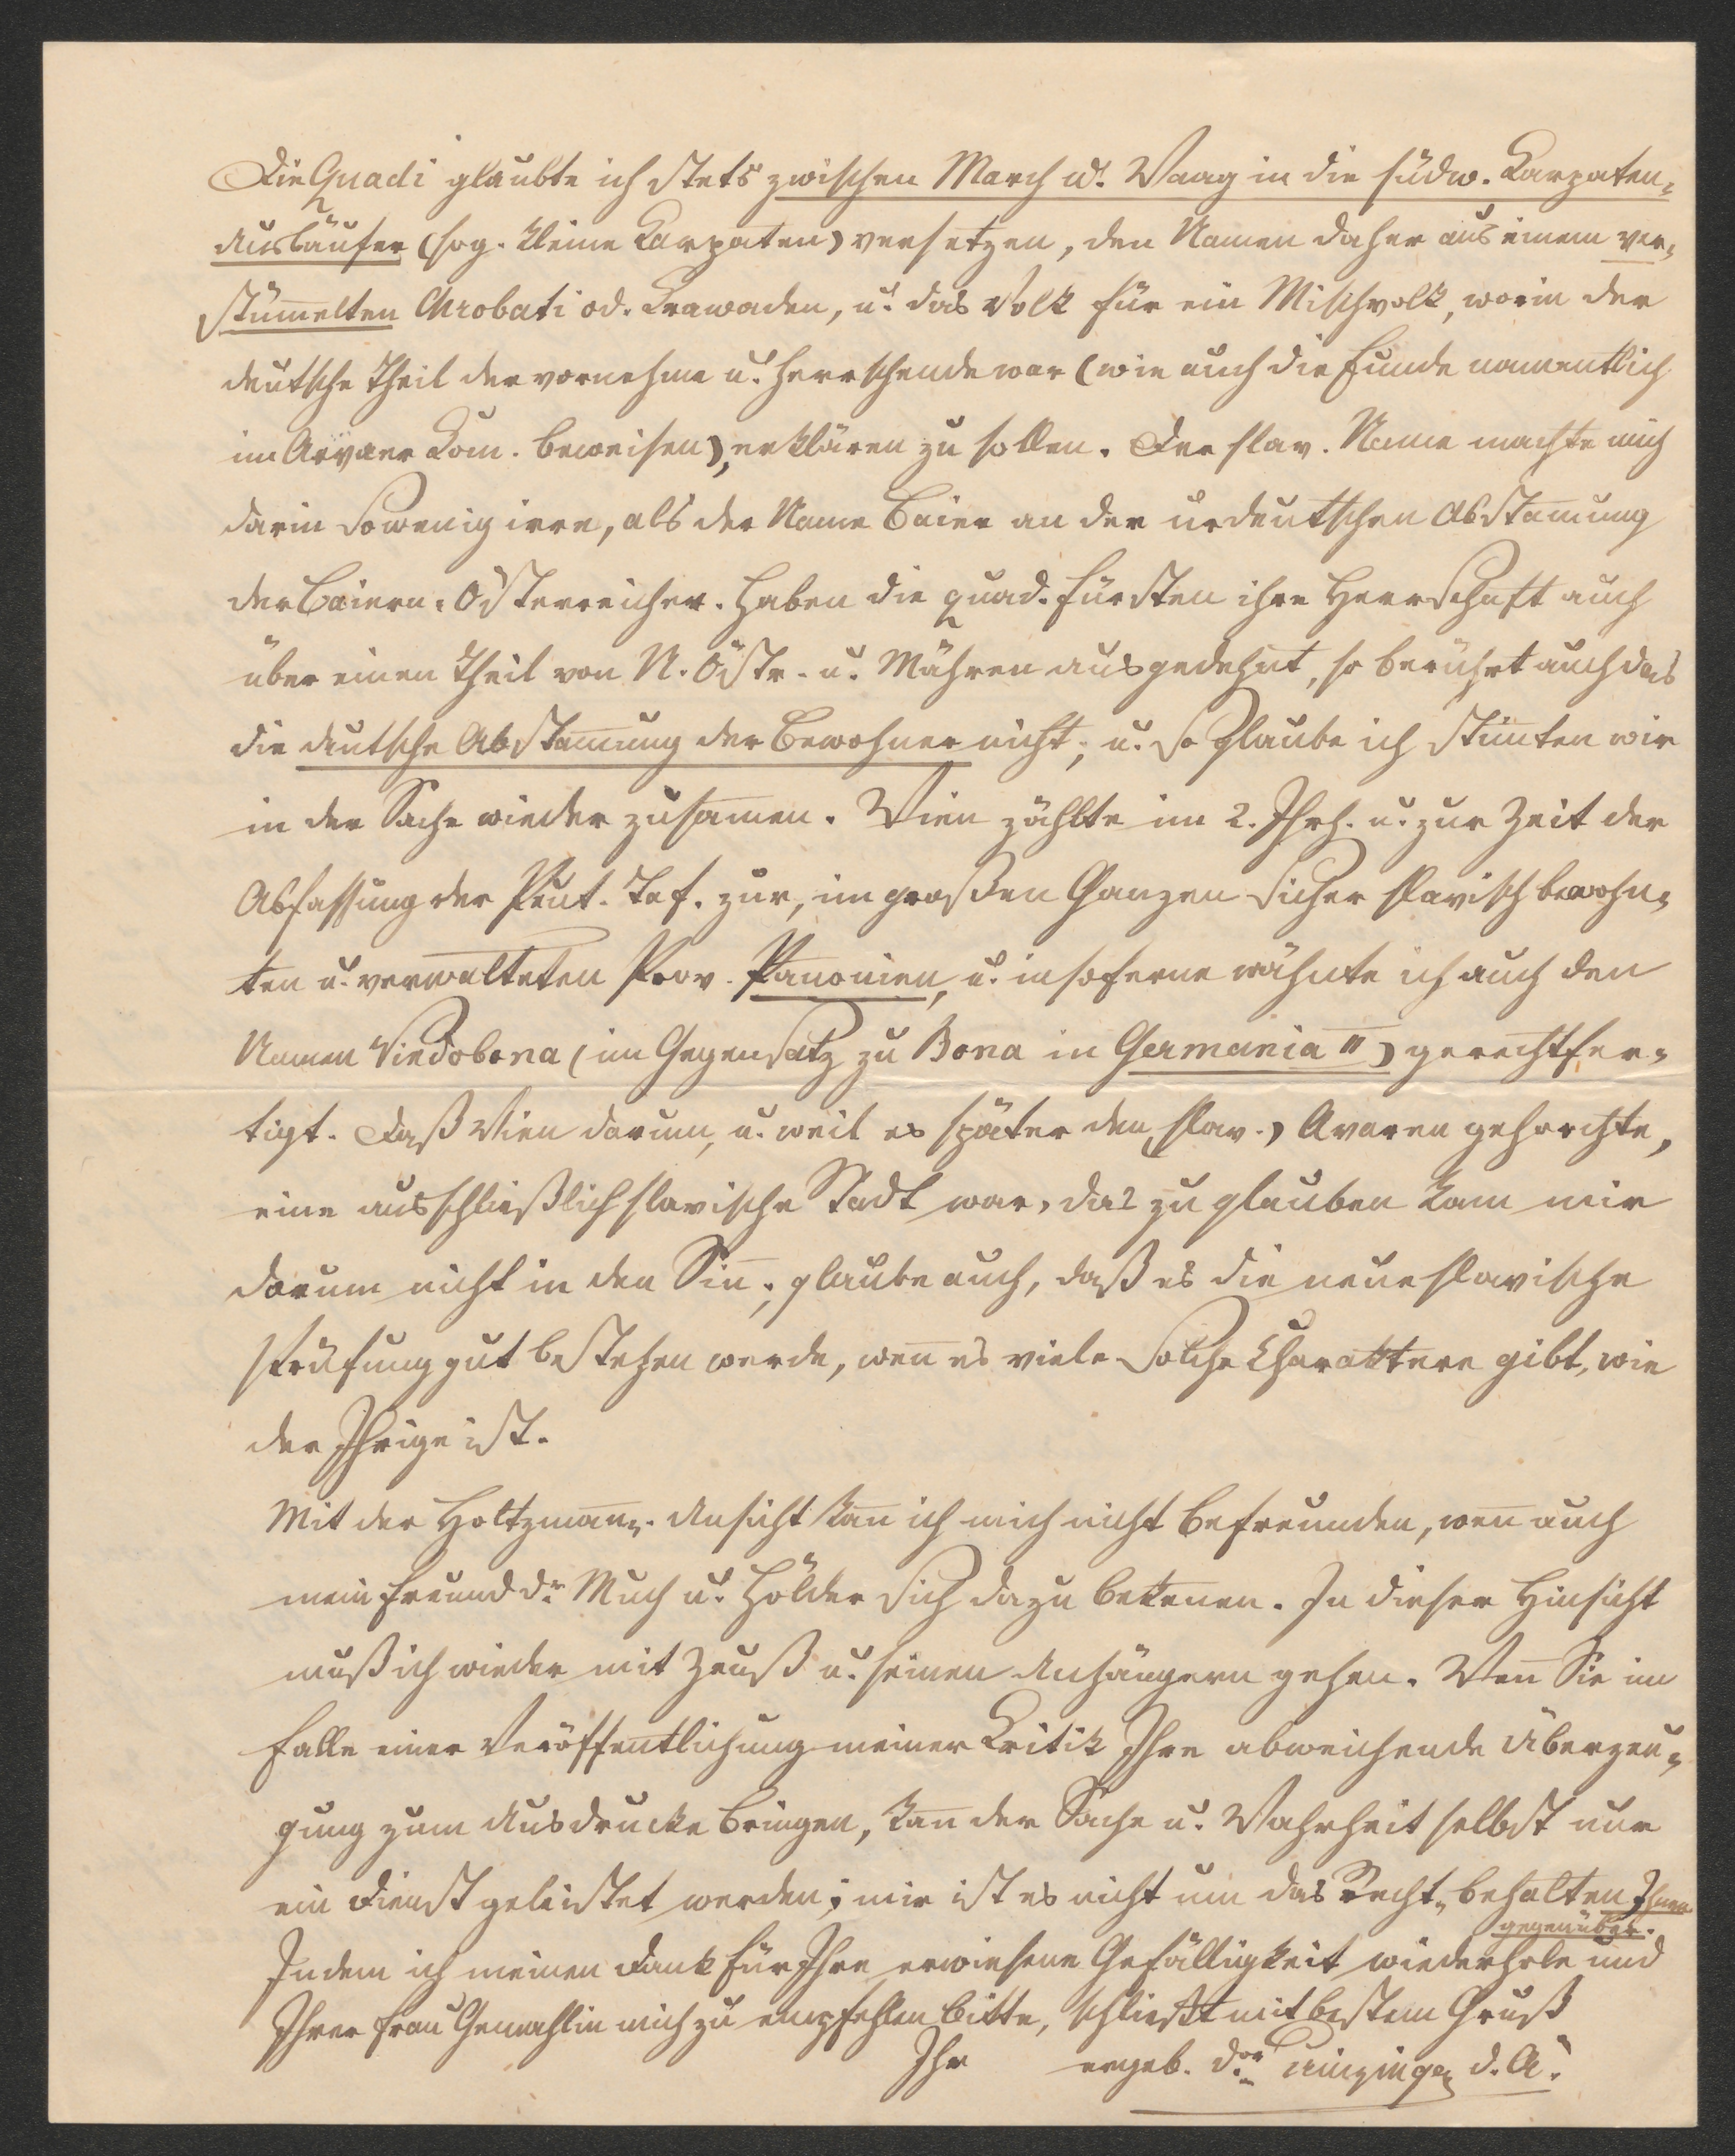 Die Quadi glaubte ich stets zwischen March u. Waag in die südw. Karpaten-
Ausläufer (sog. kleine Karpaten) versetzen, den Namen daher aus einem ver-
stüm̅elten Chrobati od. Krawaden, u. das Volk für ein Mischvolk, worin der
deutsche Theil der vornehme u. herrschende war (wie auch die Funde namentlich
im Arvaer Kom. beweisen), erklären zu sollen. Der slav. Name machte mich
darin sowenig irre, als der Name Baier an der urdeutschen Abstam̅ung
der Baiern-Österreicher. Haben die quad. Fürsten ihre Herrschaft auch
über einen Theil von N. Östr. u. Mähren ausgedehnt, so berührt auch das
die deutsche Abstam̅ung der Bewohner nicht; u. so glaube ich stim̅ten wir
in der Sache wieder zusam̅en. Wien zählte im 2. Jhrh. u. zur Zeit der
Abfassung der Peut. Taf. zur, im großen Ganzen sicher slavisch bewohn-
ten u. verwalteten Prov. Pan̅onien, u. insoferne wähnte ich auch den
Namen Vindobona (im Gegensatz zu Bona in Germania II) gerechtfer-
tigt. Daß Wien darum, u. weil es später den (slav.) Avaren gehorchte,
eine ausschließlich slavische Stadt war, das zu glauben kam mir
darum nicht in den Sin̅; glaube auch, daß es die neue slavische
Prüfung gut bestehen werde, wen̅ es viele solche Charaktere gibt, wie
der Ihrige ist.
Mit der Holtzman̅. Ansicht kan̅ ich mich nicht befreunden, wen̅ auch
mein Freund Dr Much u. Hölder sich dazu beken̅en. In dieser Hinsicht
muß ich wieder mit Zeuß u. seinen Anhängern gehen. Wen̅ Sie im
Falle einer Veröffentlichung meiner Kritik Ihre abweichende Überzeu-
gung zum Ausdrucke bringen, kan̅ der Sache u. Wahrheit selbst nur
ein Dienst geleistet werden; mir ist es nicht um das Recht-behalten Ihnen
gegenüber.
Indem ich meinen Dank für Ihre erwiesene Gefälligkeit wiederhole und
Ihrer Frau Gemahlin mich zu empfehlen bitte, schließt mit bestem Gruß
Ihr ergeb. Dor d. A.